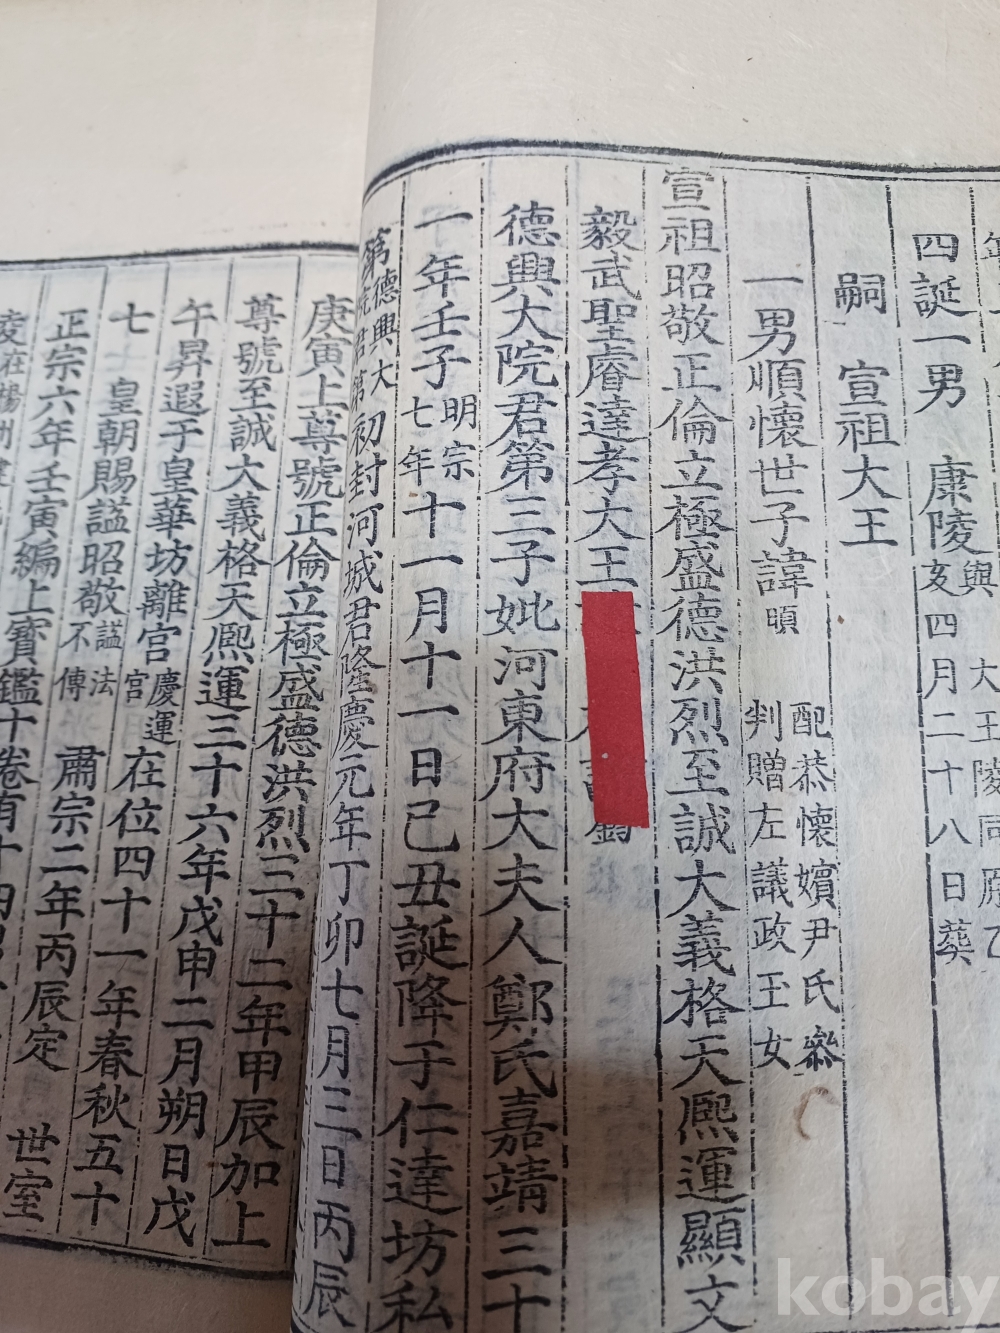 四誕一男 康陵
亥四月二十八日葬
與 大王陵同原乙
嗣 宣祖大王
一男順懷世子諱頊
配恭懷嬪尹氏叅
判贈左議政玉女
宣祖昭敬正倫立極盛德洪烈至誠大義格天熙運顯文
毅武聖睿達孝大王
德興大院君第三子妣河東府大夫人鄭氏嘉靖三十
一年壬子明宗七年十一月十一日己丑誕降于仁達坊私
第德興大院君第初封河城君隆慶元年丁卯七月三日丙辰
庚寅上尊號正倫立極盛德洪烈三十二年甲辰加上
尊號至誠大義格天熙運三十六年戊申二月朔日戊
午昇遐于皇華坊離宮慶運宮在位四十一年春秋五十
七 皇朝賜謚昭敬謚法不傳 肅宗二年丙辰定 世室
正宗六年壬寅編上寶鑑十卷
陵在楊州
kobay